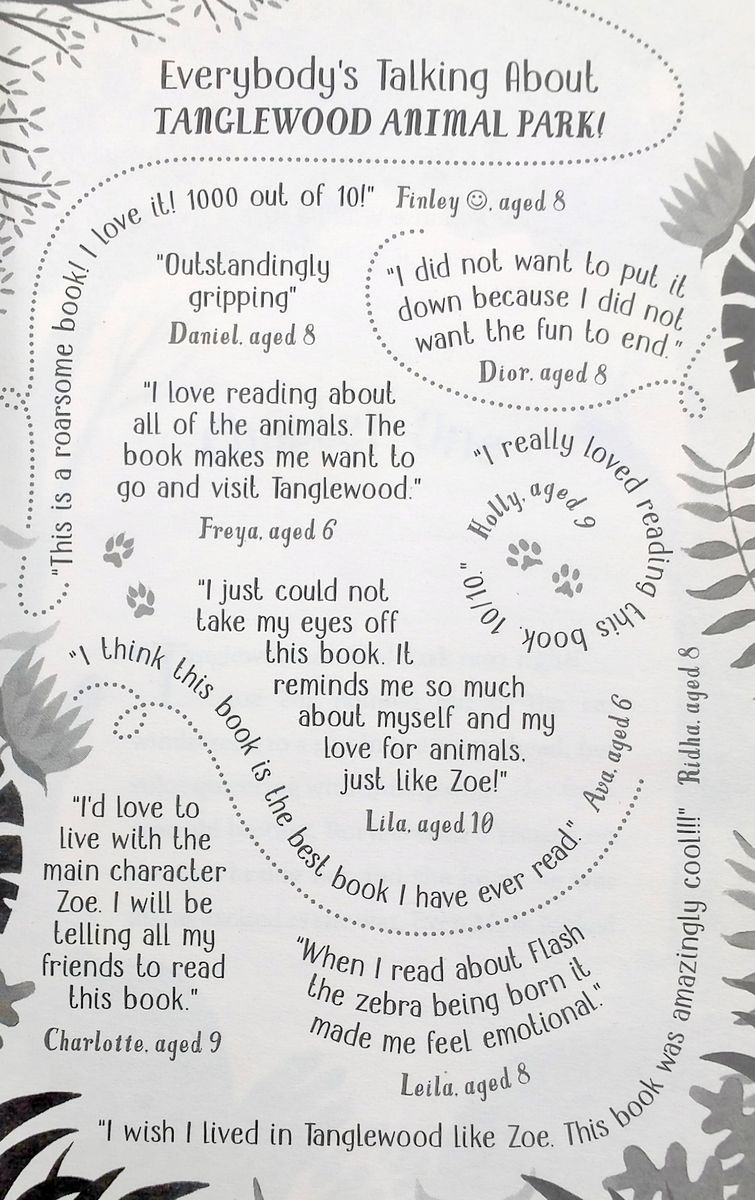 Everybody's Talking About
TANGLEWOOD ANIMAL PARK!
"This is a roarsome book! I love it! 1000 out of 10!" Finley ☺, aged 8
"Outstandingly
gripping"
Daniel, aged 8
"I did not want to put it
down because I did not
want the fun to end."
Dior, aged 8
"I love reading about
all of the animals. The
book makes me want to
go and visit Tanglewood."
Freya, aged 6
"I really loved reading this book. 10/10."
Holly, aged 9
"I just could not
take my eyes off
this book. It
reminds me so much
about myself and my
love for animals,
just like Zoe!"
Lila, aged 10
"I think this book is the best book I have ever read." Ava, aged 6
"I'd love to
live with the
main character
Zoe. I will be
telling all my
friends to read
this book."
Charlotte, aged 9
"When I read about Flash
the zebra being born it
made me feel emotional."
Leila, aged 8
"I wish I lived in Tanglewood like Zoe. This book was amazingly cool!!!" Ridha, aged 8